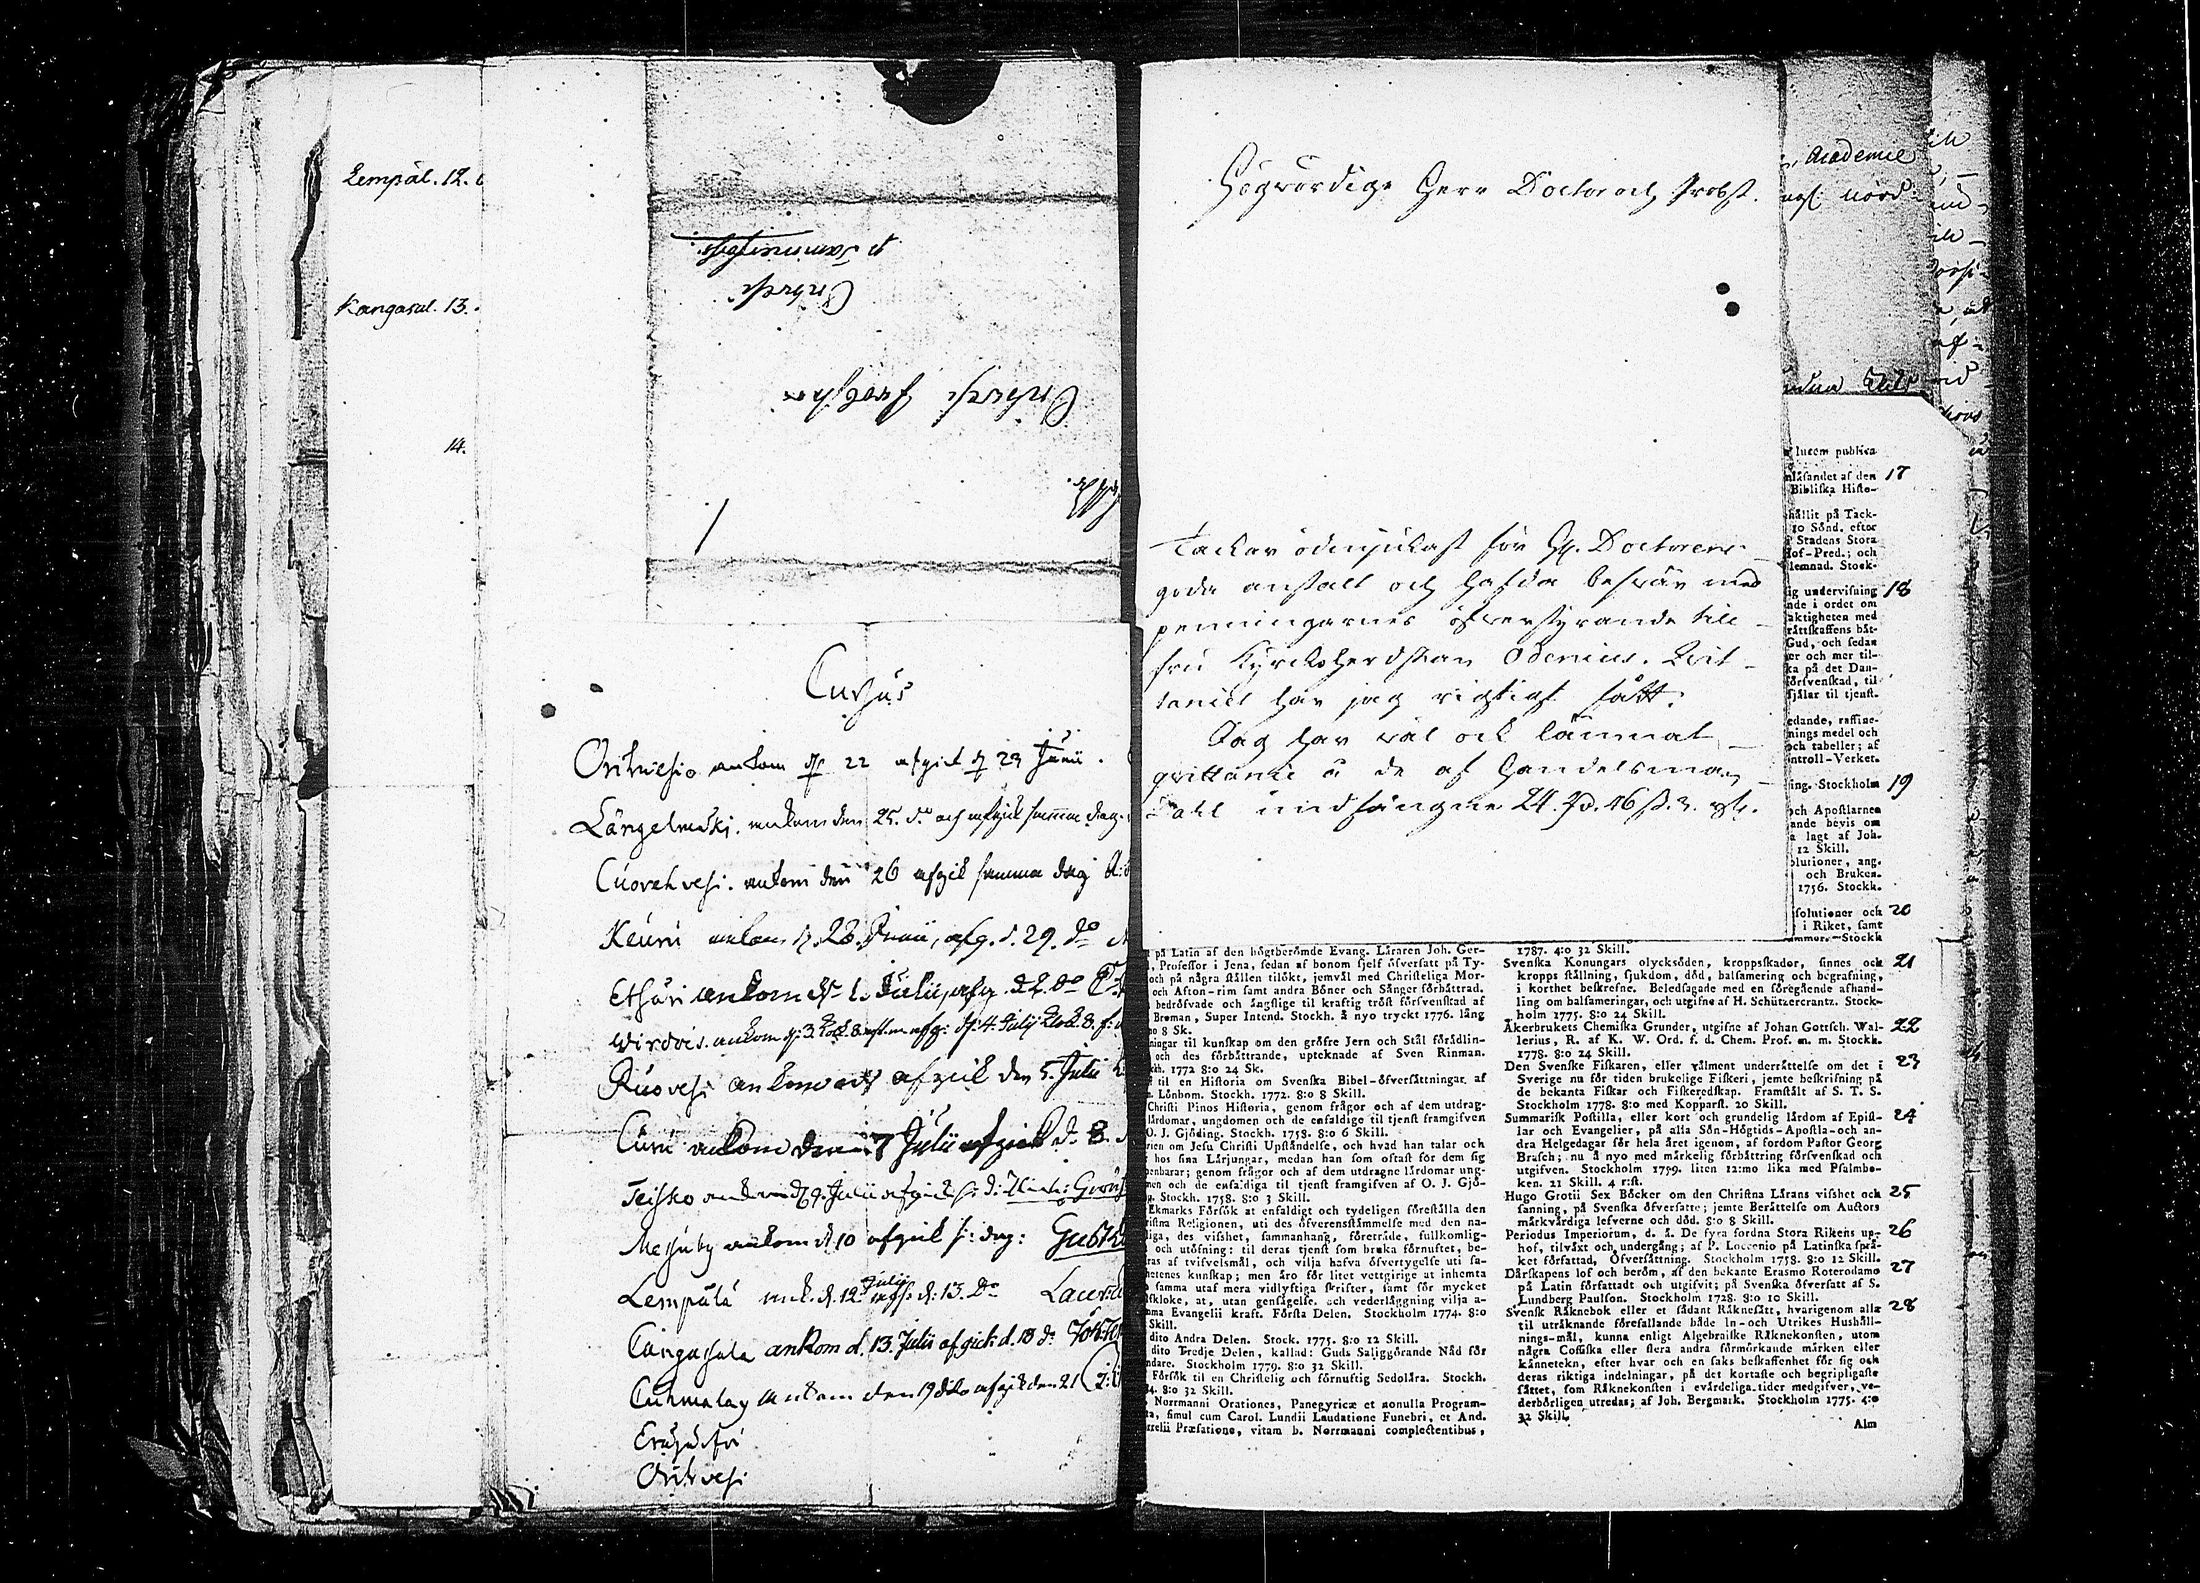 Lempäl. 12.
Kangasal. 13.
14.
Cursus
Orihvesi ankom d 22 afgick d 23 Junii.
Längelmäki. ankom den 25. do och afgick samma dag.
Cuorehvesi. ankom den 26 afgick samma dag
Keuru ankom d. 28. Junii, afg. d. 29. do
Ethäri ankom d. 1. Julii, afg. d. 2. do
Wirdois. ankom d: 3. klock. 8. afg: d: 4. Julij klock. 8. f:
Ruovesi ankom och afgick den 5. Julii
Curu ankom den 7 Julii afgick d. 8.
Teisko ankom d. 9. Julii afgick s: d:
Messuby ankom d 10 afgick s: dag:
Lempälä ank. d. 12 Julij afg: d: 13. do
Cangasala ankom d. 13. Julii afgick d. 18 do
Cuhmalax ankom den 19 dito afgick den 21
Orihvesi
Högvördige Herr Doctor och Probst.
Tackar ödmjukast för Hr. Doctorens
goda anstalt och hafda besvär med
penningarnes öfverstyrande till
fru Kyrckoherdskan Odenius. Qvit-
tancet har jag rigtigt fått.
Jag har väl ock lämnat
qvittance å de af Handelsman
undfångne 24.
Academie
lucem publica
låsandet af den 17
Bibliska Histo-
hållit på Tack-
10 Sönd. efter
Stadens Stora
Hof-Pred.; och
lemnad. Stock-
ig undervisning 18
nde i ordet om
aktigheten med
rättskaffens båt-
Gud, och sedan
er och mer til-
ka på det Dan-
försvenskad, til
själar til tjenst.
edande, raffine-
nings medel och
och tabeller; af
ntroll-Verket.
ing. Stockholm 19
och Apostlarnes
ande bevis om
a lagt af Joh.
12 Skill.
olutioner, ang.
och Bruken.
1756. Stockh.
solutioner och 20
i Riket, samt
Stockh
på Latin af den högtberömde Evang. Läraren Joh. Ger-
, Professor i Jena, sedan af honom sjelf öfversatt på Ty-
och på några ställen tilökt, jemväl med Christeliga Mor-
och Afton-rim samt andra Böner och Sånger förbättrad.
bedröfvade och ängslige til kraftig tröst försvenskad af
Broman, Super Intend. Stockh. å nyo tryckt 1776. lång
8 Sk.
ningar til kunskap om den gröfre Jern och Stål förädlin-
och des förbättrande, upteknade af Sven Rinman.
kh. 1772 8:o 24 Sk.
til en Historia om Svenska Bibel-öfversättningar. af
Lönbom. Stockh. 1772. 8:o 8 Skill.
Christi Pinos Historia, genom frågor och af dem utdrag-
lärdomar, ungdomen och de enfaldige til tjenst framgifven
O. J. Gjöding. Stockh. 1758. 8:o 6 Skill.
rien om Jesu Christi Upståndelse, och hvad han talar och
hos sina Lärjungar, medan han som oftast för dem sig
penbarar; genom frågor och af dem utdragne lärdomar ung-
men och de enfaldiga til tjenst framgifven af O. J. Gjö-
g. Stockh. 1758. 8:o 3 Skill.
Ekmarks Försök at enfaldigt och tydeligen föreställa den
ristna Religionen, uti des öfverensstämmelse med den na-
liga, des visshet, sammanhang, företräde, fullkomlig-
och utöfning: til deras tjenst som bruka förnuftet, be-
ras af tvifvelsmål, och vilja hafva öfvertygelse uti sa-
hetenes kunskap; men äro för litet vettgirige at inhemta
samma utaf mera vidlyftiga skrifter, samt för mycket
skloke, at, utan gensägelse. och vederläggning vilja a-
ma Evangelii kraft. Första Delen. Stockholm 1774. 8:o
Skill.
dito Andra Delen. Stock. 1775. 8:o 12 Skill.
dito Tredje Delen, kallad: Guds Saliggörande Nåd för
ndare. Stockholm 1779. 8:o 32 Skill.
Försök til en Christelig och förnuftig Sedolära. Stockh.
4. 8:o 32 Skill.
Norrmanni Orationes, Panegyricæ et nonulla Program-
ta, simul cum Carol. Lundii Laudatione Funebri, et And.
rrelii Præfatione, vitam b. Norrmanni complectentibus,
1787. 4:o 32 Skill.
Svenska Konungars olycksöden, kroppsskador, sinnes och 21
kropps ställning, sjukdom, död, balsamering och begrafning,
i korthet beskrefne. Beledsagade med en föregående afhand-
ling om balsameringar, och utgifne af H. Schützercrantz. Stock-
holm 1775. 8:o 24 Skill.
Åkerbrukets Chemiska Grunder, utgifne af Johan Gottsch. Wal- 22
lerius, R. af K. W. Ord. f. d. Chem. Prof. m. m. Stockh.
1778. 8:o 24 Skill.
Den Svenske Fiskaren, eller välment underrättelse om det i 23
Sverige nu för tiden brukelige Fiskeri, jemte beskrifning på
de bekanta Fiskar och Fiskeredskap. Framstält af S. T. S.
Stockholm 1778. 8:o med Kopparst. 20 Skill.
Summarisk Postilla, eller kort och grundelig lärdom af Epist- 24
lar och Evangelier, på alla Sön-Högtids-Apostla-och an-
dra Helgedagar för hela året igenom, af fordom Pastor Georg
Brasch; nu å nyo med märkelig förbättring försvenskad och
utgifven. Stockholm 1759. liten 12:mo lika med Psalmbo-
ken. 21 Skill. 4 r:st.
Hugo Grotii Sex Böcker om den Christna Lärans visshet och 25
sanning, på Svenska öfversatte; jemte Berättelse om Auctors
märkvärdiga lefverne och död. 8:o 8 Skill.
Periodus Imperiorum, d. ä. De fyra fordna Stora Rikens up- 26
hof, tilväxt och undergång; af P. Loccenio på Latinska språ-
ket författad, Öfversättning. Stockholm 1758. 8:o 12 Skill.
Dårskapens lof och beröm, af den bekante Erasmo Roterodamo 27
på Latin författadt och utgifvit; på Svenska öfversatt af S.
Lundberg Paulson. Stockholm 1728. 8:o 10 Skill.
Svensk Räknebok eller et sådant Räknesätt, hvarigenom alla 28
til uträknande förefallande både In-och Utrikes Hushåll-
nings-mål, kunna enligt Algebraiske Räknekonsten, utom
några Cossiska eller flera andra förmörkande märken eller
kännetekn, efter hvar och en saks beskaffenhet för sig och
deras riktiga indelningar, på det kortaste och begripligaste
sättet, som Räknekonsten i evärdeliga tider medgifver, ve-
derbörligen utredas; af Joh. Bergmark. Stockholm 1775. 4:o
32 Skill.
Alm